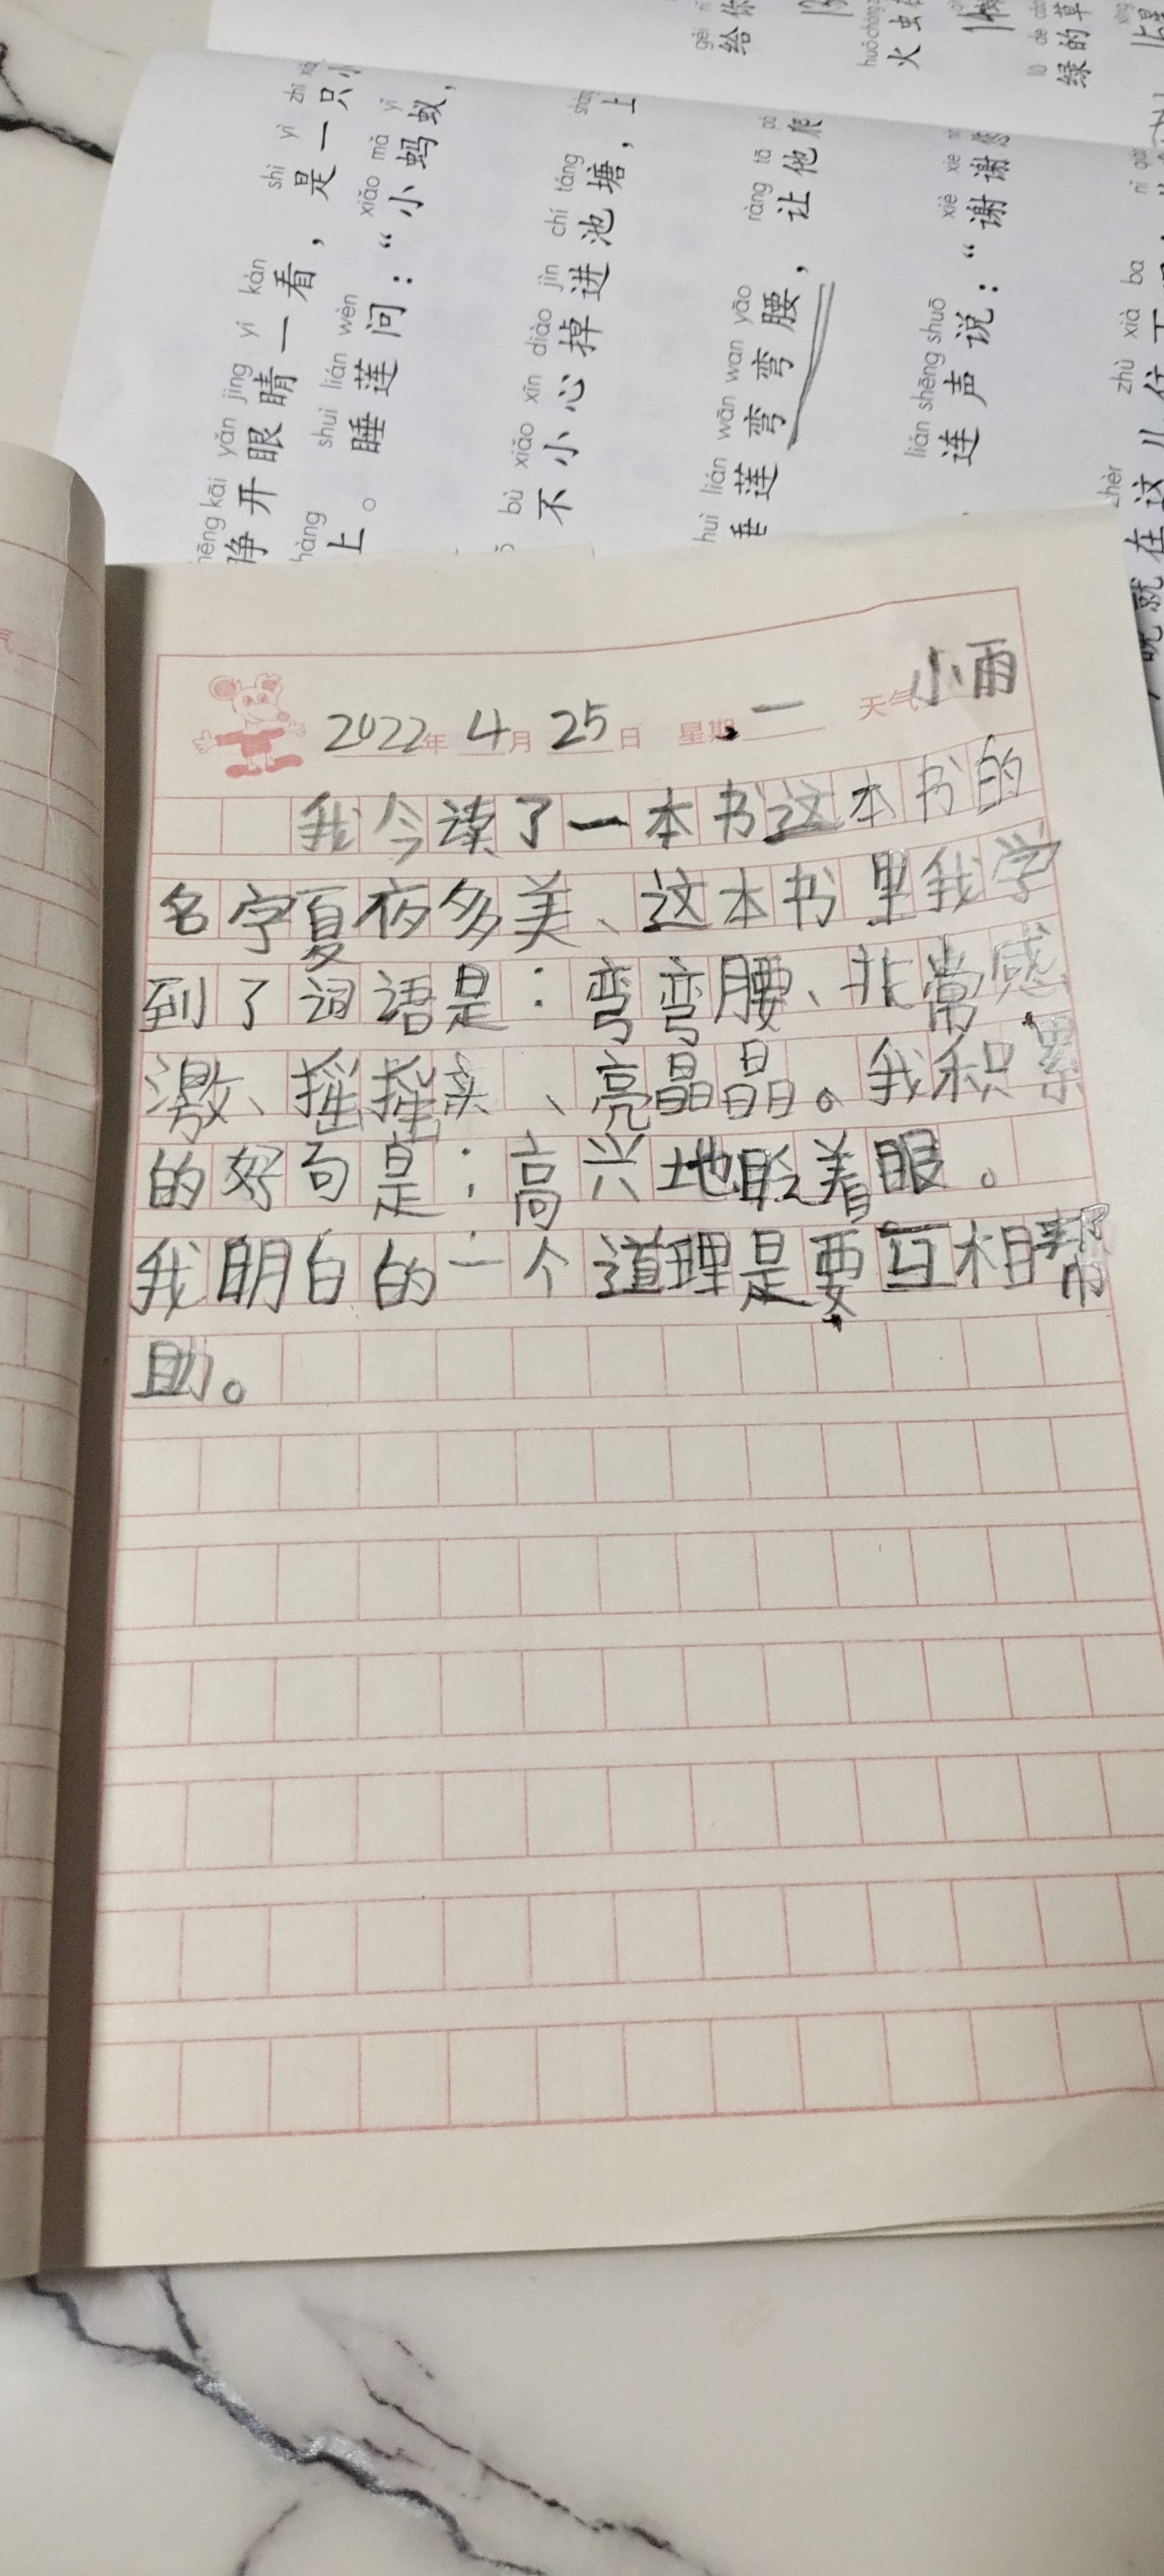 给你
火虫
绿的草
shì yì zhī
是一只小
xiǎo mǎ yǐ
小蚂蚁，
zhēng kāi yǎn jing yí kàn
睁开眼睛一看，
shuì lián wèn
上。睡莲问：“
bù xiǎo xīn diào jìn chí táng
不小心掉进池塘，上
shuì lián wān wan yāo ràng tā
睡莲弯弯腰，让他爬
lián shēng shuō xiè xie
连声说：“谢谢
zhèr zhù xià ba
就在这儿住下
2022年 4月 25日 星期一 天气小雨
我今读了一本书这本书的
名字夏夜多美、这本书里我学
到了词语是：弯弯腰、非常感
激、摇摇头、亮晶晶。我积累
的好句是：高兴地眨着眼。
我明白的一个道理是要互相帮
助。